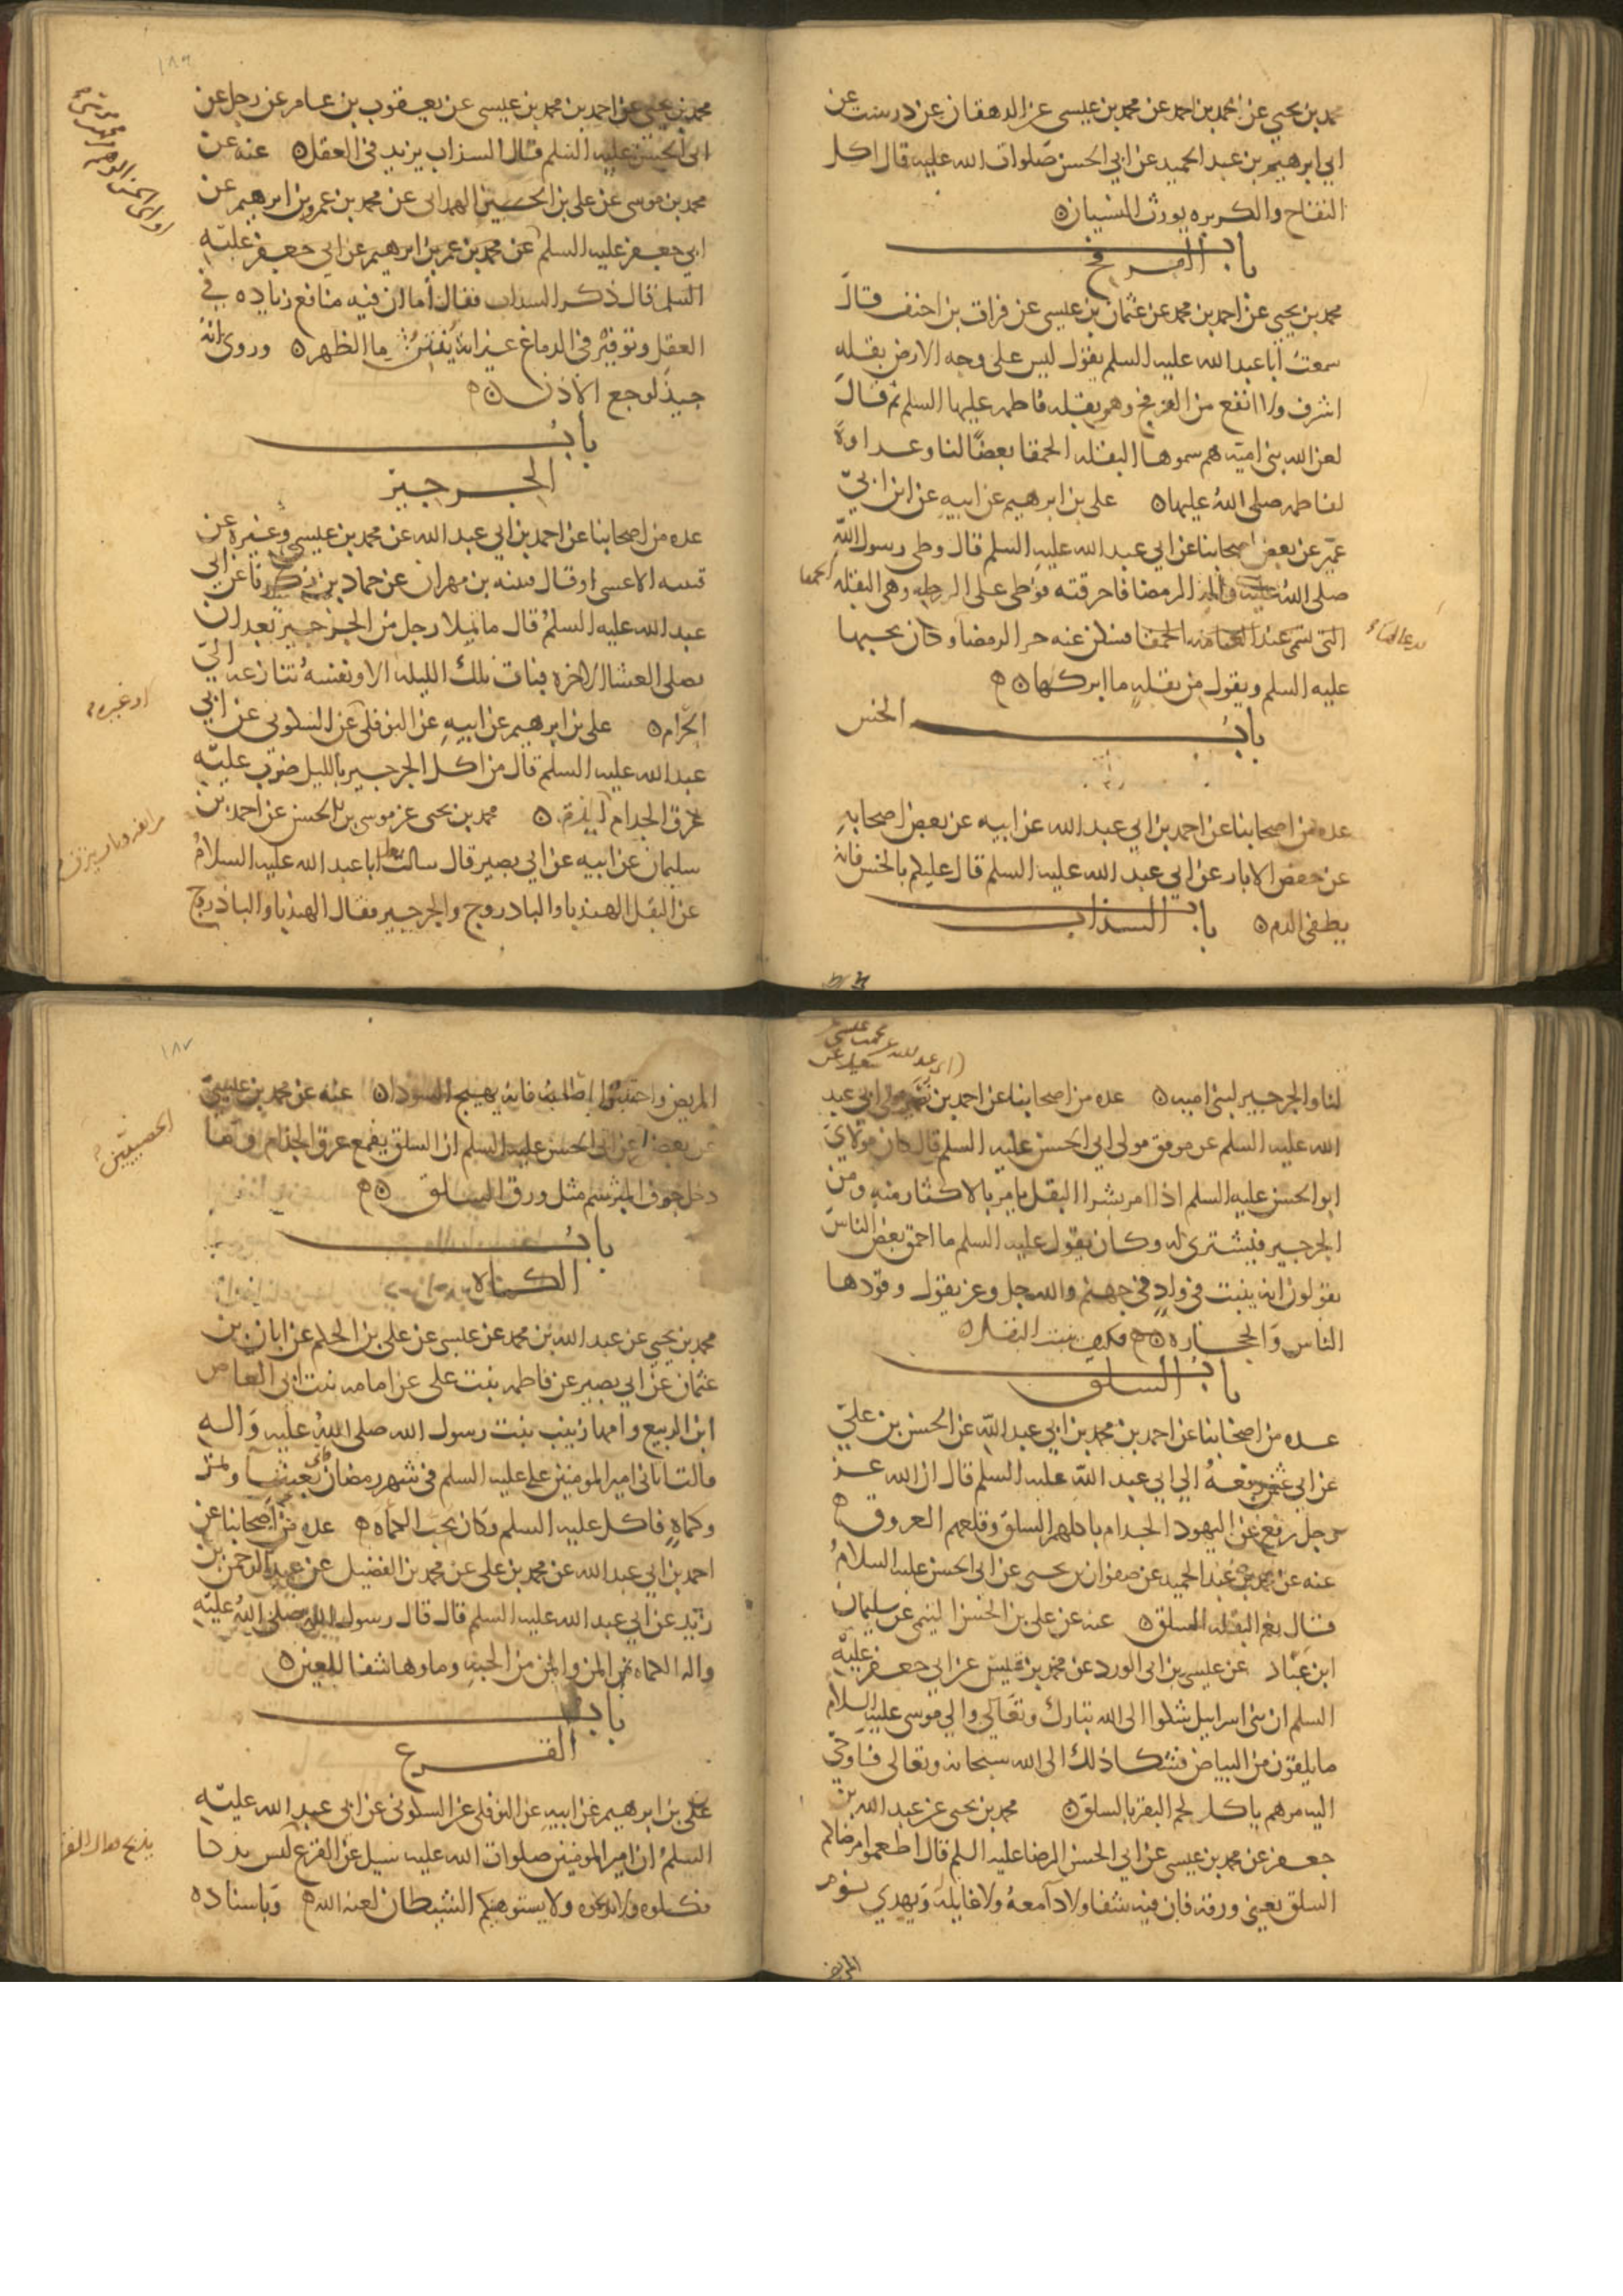 محمد بن يحيى عن احمد بن احمد عن محمد بن عيسى عن الدهقان عن درست عن
ابي ابرهيم بن عبد الحميد عن ابي الحسن صلوات الله عليه قال اكل
التفاح والكزبره يورث النسيان
باب الفرفخ
محمد بن يحيى عن احمد بن محمد عن عثمان بن عيسى عن فرات بن احنف قال
سمعت ابا عبد الله عليه السلم يقول ليس على وجه الارض بقله
اشرف ولا انفع من الفرفخ وهو بقله فاطمه عليها السلم ثم قال
لعن الله بني اميه هم سموها البقله الحمقا بغضا لنا وعداوة
لفاطمه صلى الله عليها علي بن ابرهيم عن ابيه عن ابن ابي
عمير عن بعض اصحابنا عن ابي عبد الله عليه السلم قال وطى رسول الله
صلى الله عليه واله الرمضا فاحرقته فوطى على الرجله وهي البقله
الحمقا
التي تسمى عند العامه الحمقا فسكن عنه حر الرمضا وكان يحبها
عليه السلم ويقول من بقله ما ابركها
باب الخس
عده من اصحابنا عن احمد بن ابي عبد الله عن ابيه عن بعض اصحابه
عن حفص الابار عن ابي عبد الله عليه السلم قال عليكم بالخس فانه
يطفي الدم باب السذاب
١٨٦
محمد بن يحيى عن احمد بن محمد بن عيسى عن يعقوب بن عامر عن رجل عن
ابي الحسن عليه السلم قال السذاب يزيد في العقل عنه عن
محمد بن موسى عن علي بن الحسين الهمداني عن محمد بن عمرو بن ابرهيم عن
ابي جعفر عليه السلم عن محمد بن عمر بن ابرهيم عن ابي جعفر عليه
السلم قال ذكر السداب فقال اما ان فيه منافع زياده في
العقل وتوفير في الدماغ غير انه ينتن ما الظهر وروى انه
جيد لوجع الاذن
باب
الجرجير
عده من اصحابنا عن احمد بن ابي عبد الله عن محمد بن عيسى وغيره عن
قتيبه الاعسى او قال قتيبه بن مهران عن حماد بن زكريا عن ابي
عبد الله عليه السلم قال ما تملا رجل من الجرجير بعد ان
يصلي العشا الاخره فبات تلك الليله الا ونفسه تنازعه الى
الجذام علي بن ابرهيم عن ابيه عن النوفلي عن السكوني عن ابي
او غيره
عبد الله عليه السلم قال من اكل الجرجير بالليل ضرب عليه
عرق الجدام محمد بن يحيى عن موسى بن الحسن عن احمد بن
سليمان عن ابيه عن ابي بصير قال سالت ابا عبد الله عليه السلام
عن البقل الهندبا والبادروج والجرجير فقال الهندبا والباذروج
لنا والجرجير لبني اميه عده من اصحابنا عن احمد بن نصر مولى ابي عبد
الله عليه السلم عن موفق مولى ابي الحسن عليه السلم قال كان مولاي
ابو الحسن عليه السلم اذا امر بشرا البقل يامر بالاكثار منه ومن
الجرجير فيشترى له وكان يقول عليه السلم ما احمق بعض الناس
يقولون انه ينبت في واد في جهنم والله جل وعز يقول وقودها
الناس والحجاره فكيف ينبت البقل
باب السلق
عده من اصحابنا عن احمد بن محمد بن ابي عبد الله عن الحسن بن علي
عن ابي عثمن رفعه الى ابي عبد الله عليه السلم قال ان الله عز
وجل رفع عن اليهود الجدام باكلهم السلق وقلعهم العروق
عنه عن محمد بن عبد الحميد عن صفوان بن يحيى عن ابي الحسن عليه السلام
قال نعم البقله السلق عنه عن علي بن الحسن التيمي عن سليمان
ابن عباد عن عيسى بن ابي الورد عن محمد بن قيس عن ابي جعفر عليه
السلم ان بني اسرايل شكوا الى الله تبارك وتعالى والى موسى عليه السلام
ما يلقون من البياض فشكا ذلك الى الله سبحانه وتعالى فاوحى
اليه مرهم ياكلو لحم البقر بالسلق محمد بن يحيى عن عبد الله بن
جعفر عن محمد بن عيسى عن ابي الحسن الرضا عليه السلم قال اطعموا مرضاكم
السلق يعني ورقه فان فيه شفا ولا دا معه ولا غايله ويهدي نوم
المريض
١٨٧
المريض واجتنبوا اصله فانه يهيج السودا عنه عن محمد بن عيسى
عن بعض عن ابي الحسن عليه السلم ان السلق يقمع عرق الجذام وما
دخل جوف المبرسم مثل ورق السلق
باب
الكماه
محمد بن يحيى عن عبد الله بن محمد عن عيسى عن علي بن الحكم عن ابان بن
عثمان عن ابي بصير عن فاطمه بنت علي عن امامه بنت ابي العاص
ابن الربيع وامها زينب بنت رسول الله صلى الله عليه واله
قالت اتاني امير المومنين علي عليه السلم في شهر رمضان فاتي بعشا وتمر
وكماه فاكل عليه السلم وكان يحب الكماه عده من اصحابنا عن
احمد بن ابي عبد الله عن محمد بن علي عن محمد بن الفضيل عن عبد الرحمن بن
زيد عن ابي عبد الله عليه السلم قال قال رسول الله صلى الله عليه
واله الكماه من المن والمن من الجنه وماوها شفا للعين
باب
القرع
علي بن ابرهيم عن ابيه عن النوفلي عن السكوني عن ابي عبد الله عليه
السلم ان امير المومنين صلوات الله عليه سيل عن القرع
فكلوه ولا تذبحوه ولا يستهوينكم الشيطان لعنه الله وباسناده